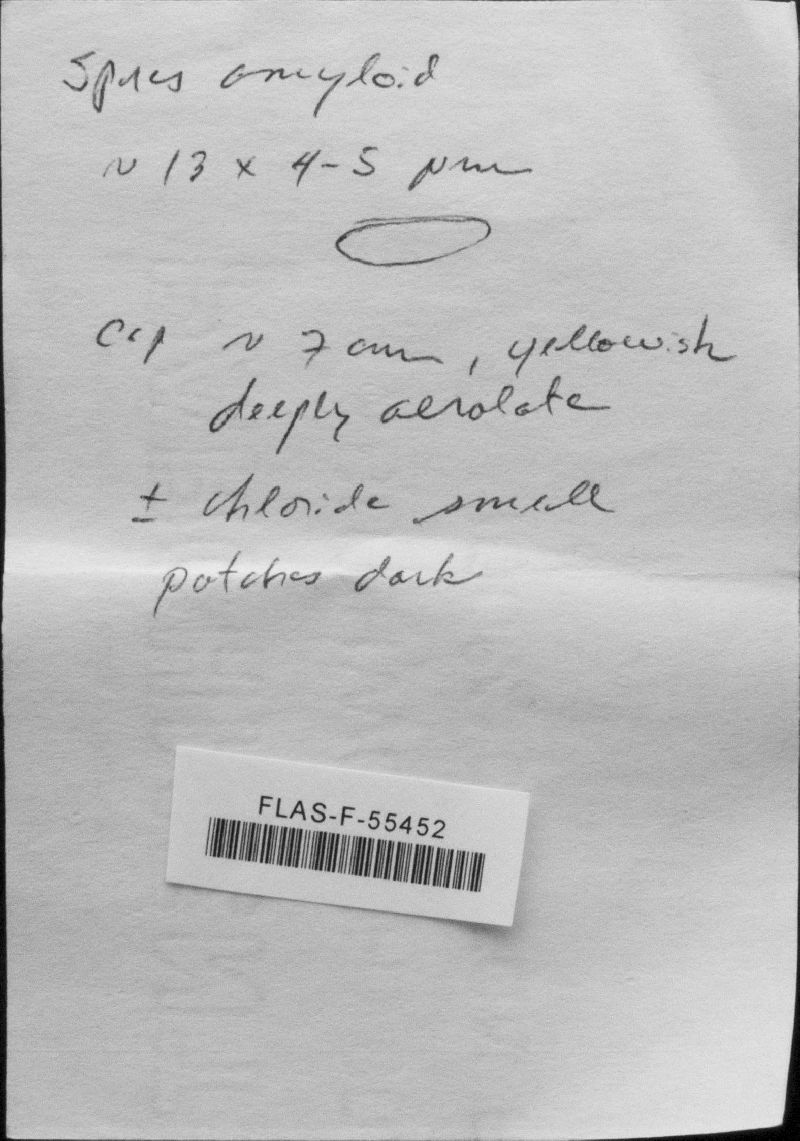 Spores amyloid
~ 13 x 4-5 μm
Cap ~ 7 cm, yellowish
deeply aerolate
± chloride small
patches dark
FLAS-F-55452